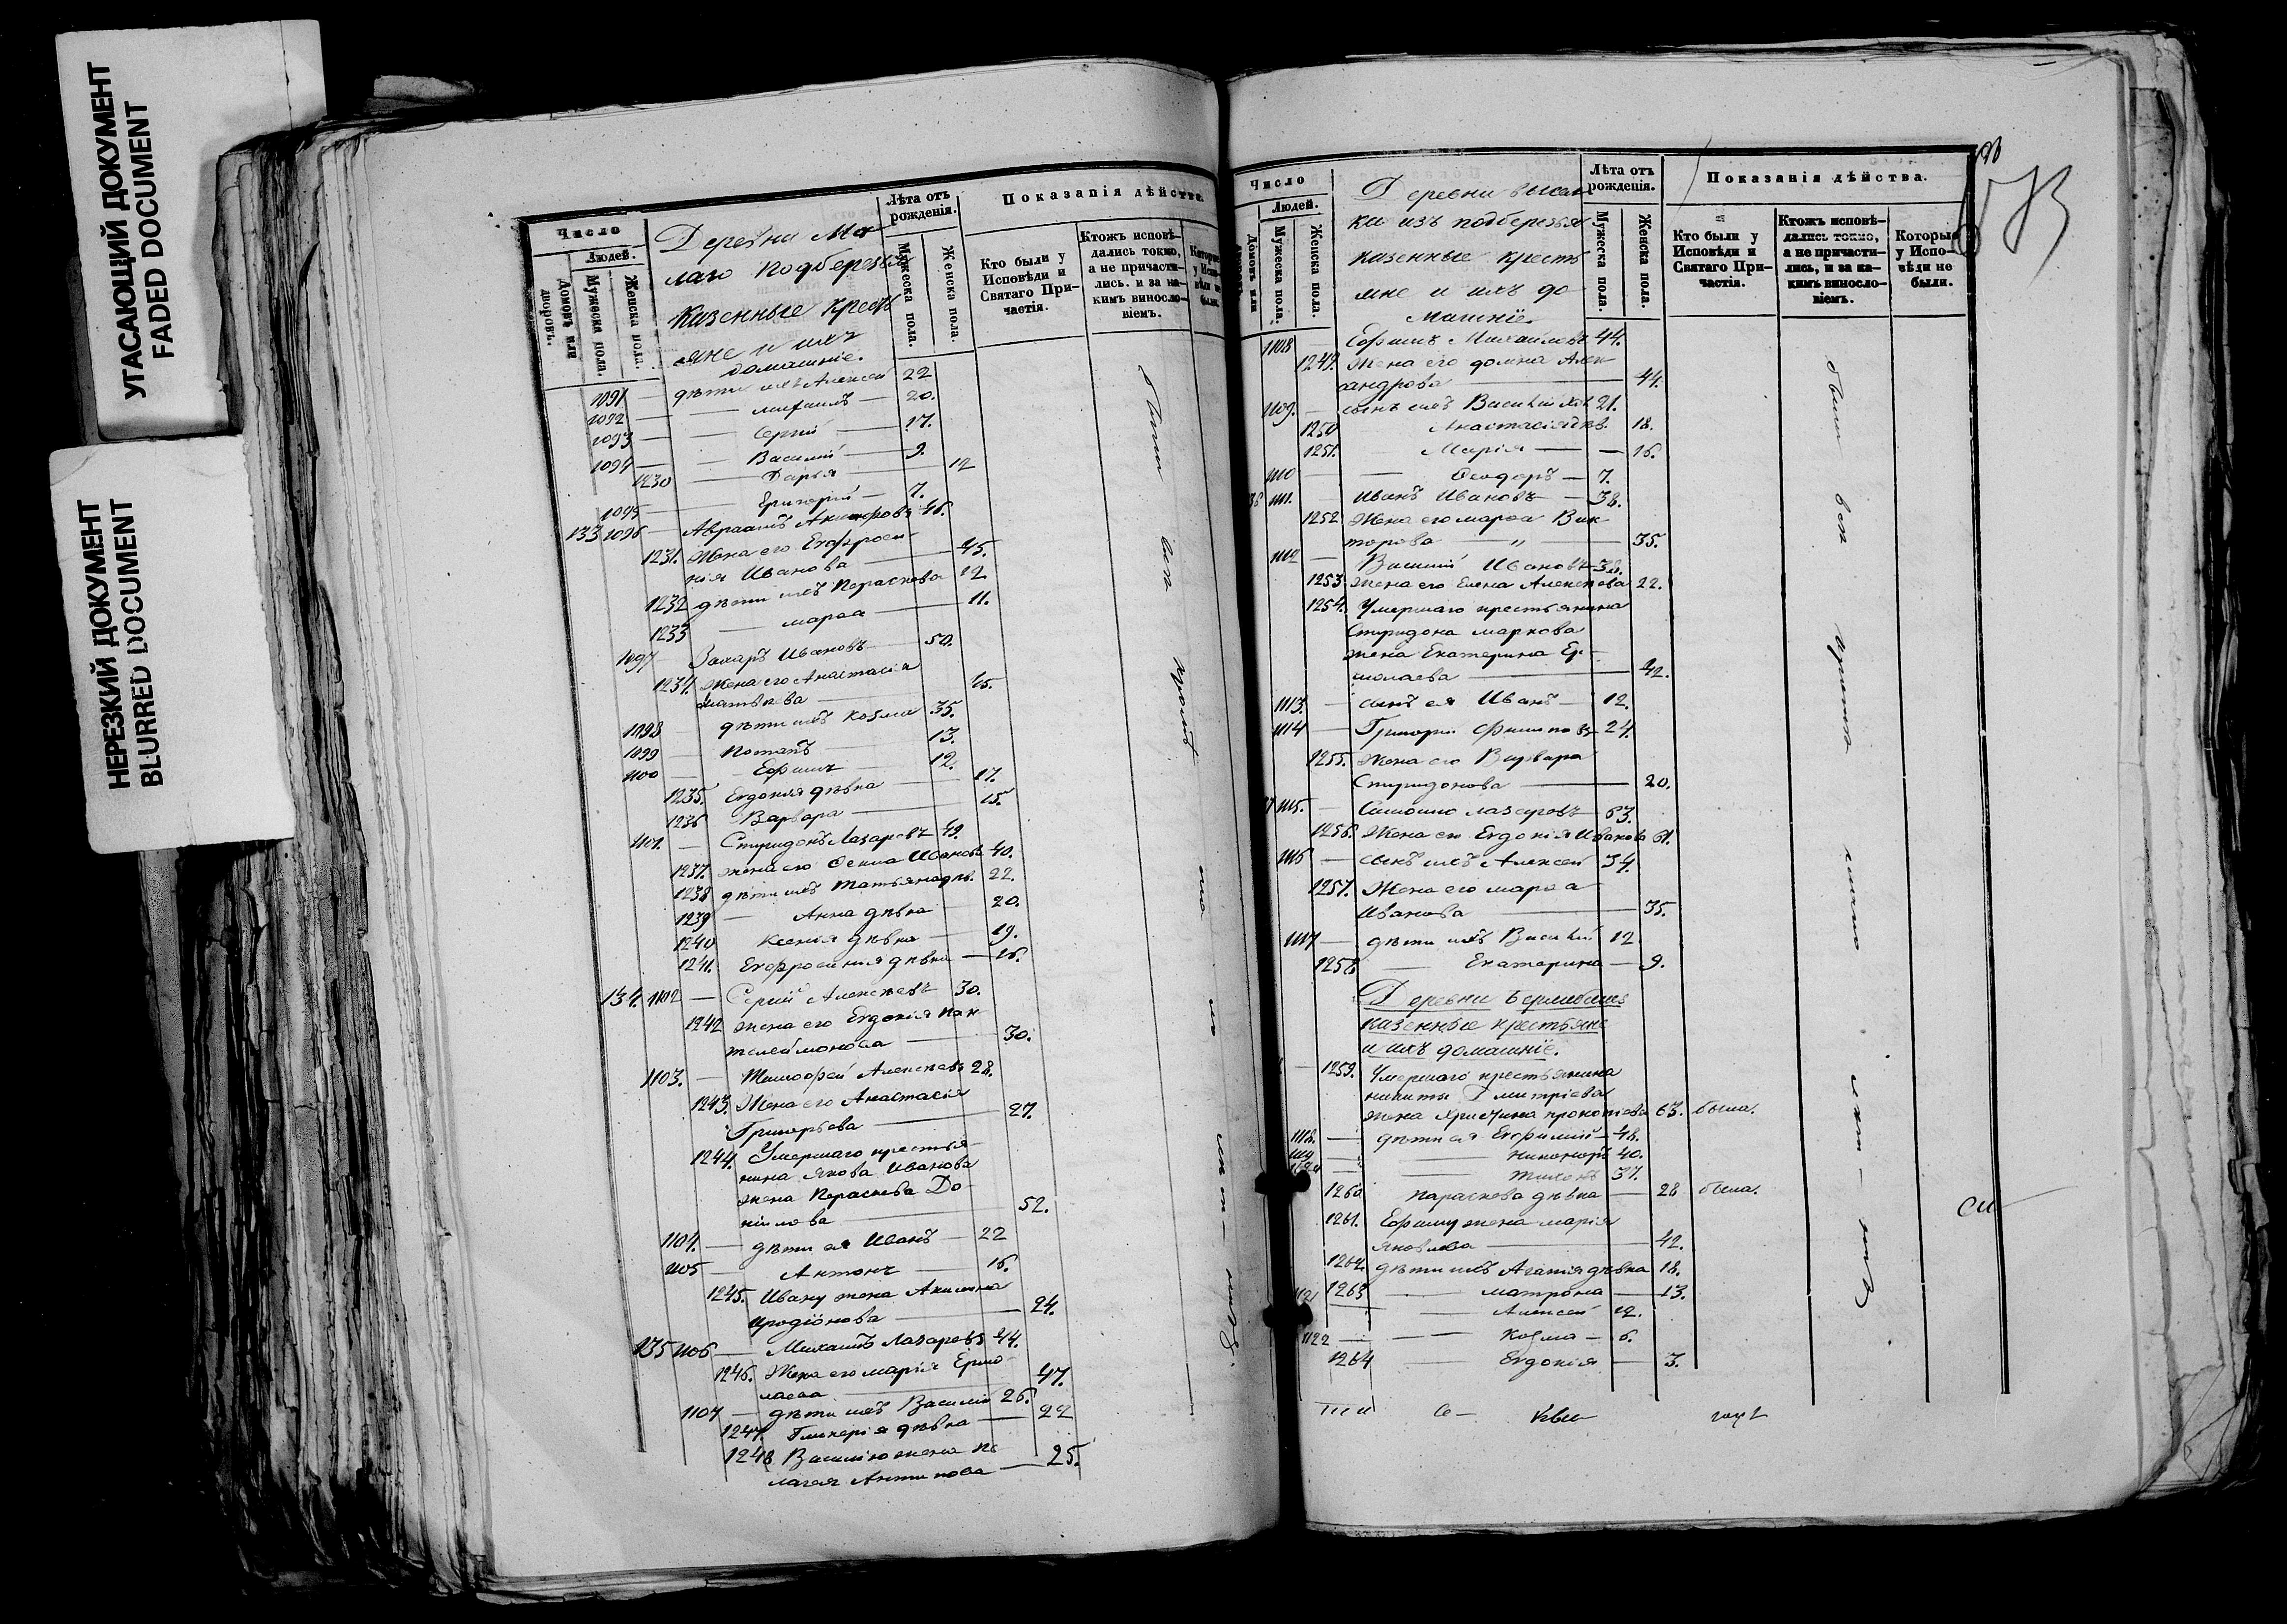 УГАСАЮЩИЙ ДОКУМЕНТ
FADED DOCUMENT
НЕРЕЗКИЙ ДОКУМЕНТ
BLURRED DOCUMENT
Число
Людей.
Домовъ или дворовъ.
Мужеска пола.
Женска пола.
Деревни Ма
лаго Подберезья
Казенные кресть
яне и ихъ
домашніе.
Лѣта отъ рожденія.
Мужеска пола.
Женска пола.
Показанія дѣйства.
Кто были у Исповѣди и Святаго Причастія.
Ктожъ исповѣ-
дались токмо,
а не причасти-
лись. и за ка-
кимъ виносло-
віемъ.
Которые у Испо-
вѣди не были.
1091 — дѣти ихъ Алексей 22
1092 — — Михаилъ — 20.
1093 — — Сергій — 17.
1094 — — Василій — 9.
1230 — Дарья — 12
1095 — Григорій — 7.
133 1096 — Авраамъ 46.
1231. Жена его Евфроси-
нія Иванова — 45.
1232 дѣти ихъ Параскева 12
1233 — марѳа — 11.
1097 Захаръ Ивановъ — 50.
1234. Жена его Анастасія
Матвѣева — 45.
1098 дѣти ихъ Козма 35.
1099 — Потапъ — 13.
1100 — Ефимъ 12.
1235. Евдокія дѣвка — 17.
1236 Варвара — 15.
1101. — Спиридонъ Лазаревъ 49.
1237. жена его Иванова 40.
1238 дѣти ихъ Татьяна дѣв. 22.
1239 — Анна дѣвка — 20.
1240 Ксенія дѣвка — 19.
1241. Евфросинія дѣвка — 16.
134. 1102 — Сергій Алексѣевъ 30.
1242 жена его Евдокія Пан
телеймонова — 30.
1103. — Тимоѳей Алексѣевъ 28.
1243. Жена его Анастасія
Григорьева — 27.
1244. Умершаго крестья-
нина Якова Иванова
жена Параскева Да-
нилова — 52.
1104. — дѣти ея Иванъ — 22
1105 — Антонъ — 16.
1245. Ивану жена Акилина
Иродіонова — 24.
135 1106 — Михаилъ Лазаревъ 44.
1246. Жена его марія Ермо-
лаева — 47.
1107 — дѣти ихъ Василій 26.
1247. Гликерія дѣвка — 22
1248. Василію жена Пе
лагея Антипова — 25.
Были всѣ
Число
Людей.
Домовъ или
Мужеска пола.
Женска пола.
Деревни высел
ки изъ подберезья
казенные кресть
яне и ихъ до
машніе
Лѣта отъ рожденія.
Мужеска пола.
Женска пола.
Показанія дѣйства.
Кто были у
Исповѣди и
Святаго При-
частія.
Ктожъ исповѣ-
дались токмо,
а не причасти-
лись, и за ка-
кимъ виносло-
віемъ.
Которые
у Испо-
вѣди не
были.
1108 — Ефимъ Михайловъ 44.
1249. Жена его домна Алек
сандрова — 44.
1109. — сынъ ихъ Василій 21.
1250 Анастасія дѣв. 18.
1251. Марія — — 16.
1110 — Ѳеодоръ — 7.
1111. — Иванъ Ивановъ — 38.
1252 Жена его марѳа Вик
торова — „ — 35.
1112 — Василій Ивановъ
1253 Жена его Елена Алексѣева 22.
1254. Умершаго крестьянина
Спиридона маркова
жена Екатерина Ер-
молаева — 42.
1113. — сынъ ея Иванъ — 12.
1114 — Григорій Филиповъ 24.
1255. Жена его Варвара
Спиридонова — 20.
1115. — лазаревъ 63.
1256. Жена его Евдокія Иванова 61.
1116 — сынъ ихъ Алексей 34.
1257. Жена его марѳа
Иванова — 35.
1117 — дѣти ихъ Василій 12
1258 — Екатерина — 9.
Деревни
казенные крестьяне
и ихъ домашніе.
1259. Умершаго крестьянина
никиты Дмитріева
жена Христина прокопіева 63. была.
1118. — дѣти ея Евфимій — 48.
1119 — Никоноръ 40.
1120 — Тихонъ 37.
1260 Параскева дѣвка — 28 была.
1261. Ефиму жена марія
Яковлева — 42.
1262. дѣти ихъ Агаѳія дѣвка 18.
1263 — матрона — 13.
1121 — Алексей 12.
1122 — — Козма — 6.
1264 — Евдокія — 3.
были всѣ